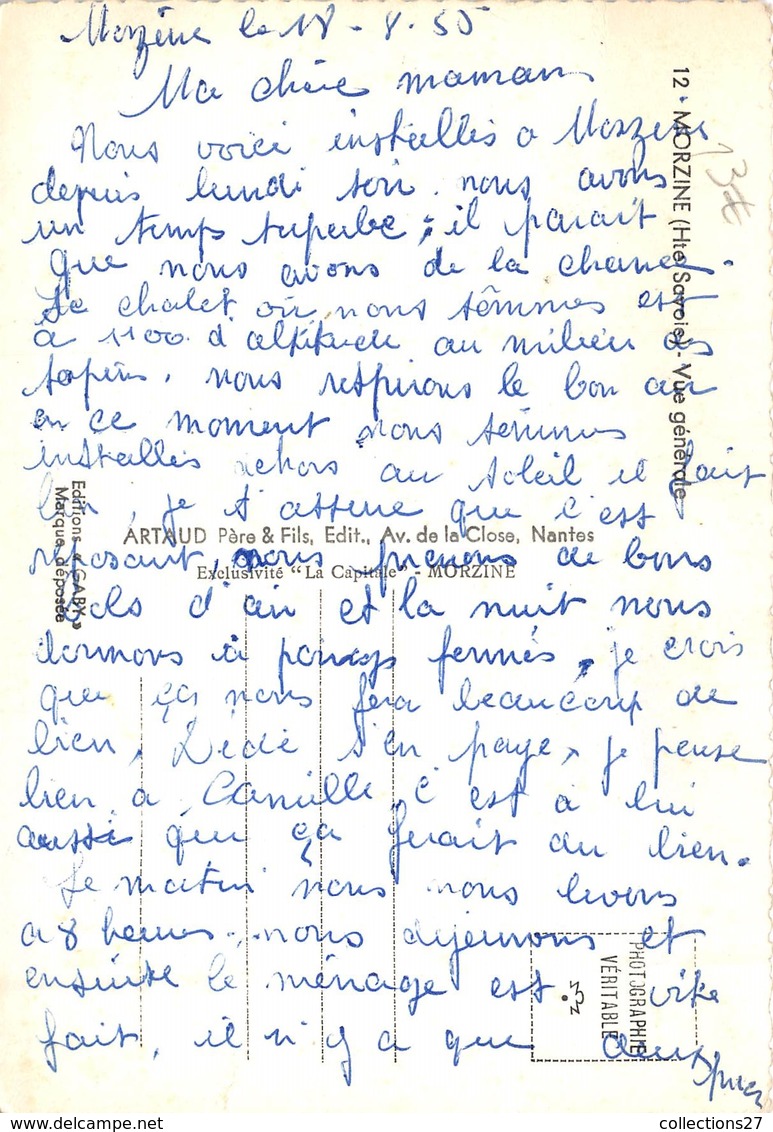 Morzine le 18 - 8. 55
Ma chère maman
Nous voici installés a Morzine
depuis lundi soir. nous avons
un temps superbe ; il parait
que nous avons de la chance.
Le chalet où nous sommes est
à 1100. d'altitude au milieu des
sapins. nous respirons le bon air
en ce moment nous sommes
installés dehors au soleil il fait
bon, je t'assure que c'est
reposant, nous prenons de bons
bols d'air et la nuit nous
dormons à poings fermés, je crois
que ça nous fera beaucoup de
bien, Dédé s'en paye, je pense
bien à Camille, c'est à lui
aussi que ça ferait du bien.
Le matin nous nous levons
a 8 heures., nous déjeunons et
ensuite le ménage est vite
fait, il n'y a que deux
12 - MORZINE (Hte Savoie) - Vue générale
Editions "GABY"
Marque déposée
ARTAUD Père & Fils, Edit., Av. de la Close, Nantes
Exclusivité "La Capitale" - MORZINE
PHOTOGRAPHIE
VÉRITABLE
collections27